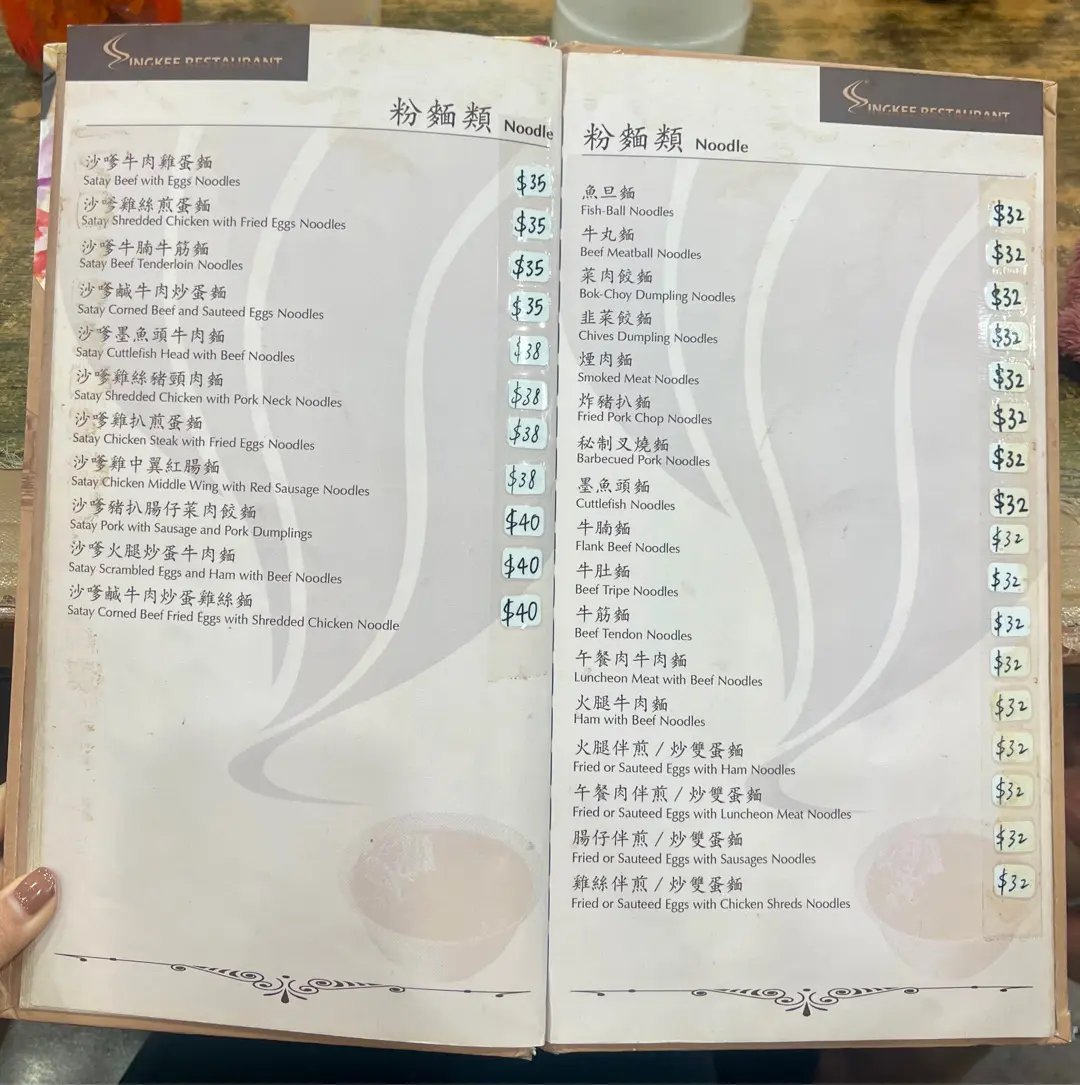 SINGKEE RESTAURANT
粉麵類 Noodle
沙嗲牛肉雞蛋麵
Satay Beef with Eggs Noodles $35
沙嗲雞絲煎蛋麵
Satay Shredded Chicken with Fried Eggs Noodles $35
沙嗲牛腩牛筋麵
Satay Beef Tenderloin Noodles $35
沙嗲鹹牛肉炒蛋麵
Satay Corned Beef and Sauteed Eggs Noodles $35
沙嗲墨魚頭牛肉麵
Satay Cuttlefish Head with Beef Noodles $38
沙嗲雞絲豬頸肉麵
Satay Shredded Chicken with Pork Neck Noodles $38
沙嗲雞扒煎蛋麵
Satay Chicken Steak with Fried Eggs Noodles $38
沙嗲雞中翼紅腸麵
Satay Chicken Middle Wing with Red Sausage Noodles $38
沙嗲豬扒腸仔菜肉餃麵
Satay Pork with Sausage and Pork Dumplings $40
沙嗲火腿炒蛋牛肉麵
Satay Scrambled Eggs and Ham with Beef Noodles $40
沙嗲鹹牛肉炒蛋雞絲麵
Satay Corned Beef Fried Eggs with Shredded Chicken Noodle $40
SINGKEE RESTAURANT
粉麵類 Noodle
魚旦麵
Fish-Ball Noodles $32
牛丸麵
Beef Meatball Noodles $32
菜肉餃麵
Bok-Choy Dumpling Noodles $32
韭菜餃麵
Chives Dumpling Noodles $32
煙肉麵
Smoked Meat Noodles $32
炸豬扒麵
Fried Pork Chop Noodles $32
秘制叉燒麵
Barbecued Pork Noodles $32
墨魚頭麵
Cuttlefish Noodles $32
牛腩麵
Flank Beef Noodles $32
牛肚麵
Beef Tripe Noodles $32
牛筋麵
Beef Tendon Noodles $32
午餐肉牛肉麵
Luncheon Meat with Beef Noodles $32
火腿牛肉麵
Ham with Beef Noodles $32
火腿伴煎 / 炒雙蛋麵
Fried or Sauteed Eggs with Ham Noodles $32
午餐肉伴煎 / 炒雙蛋麵
Fried or Sauteed Eggs with Luncheon Meat Noodles $32
腸仔伴煎 / 炒雙蛋麵
Fried or Sauteed Eggs with Sausages Noodles $32
雞絲伴煎 / 炒雙蛋麵
Fried or Sauteed Eggs with Chicken Shreds Noodles $32